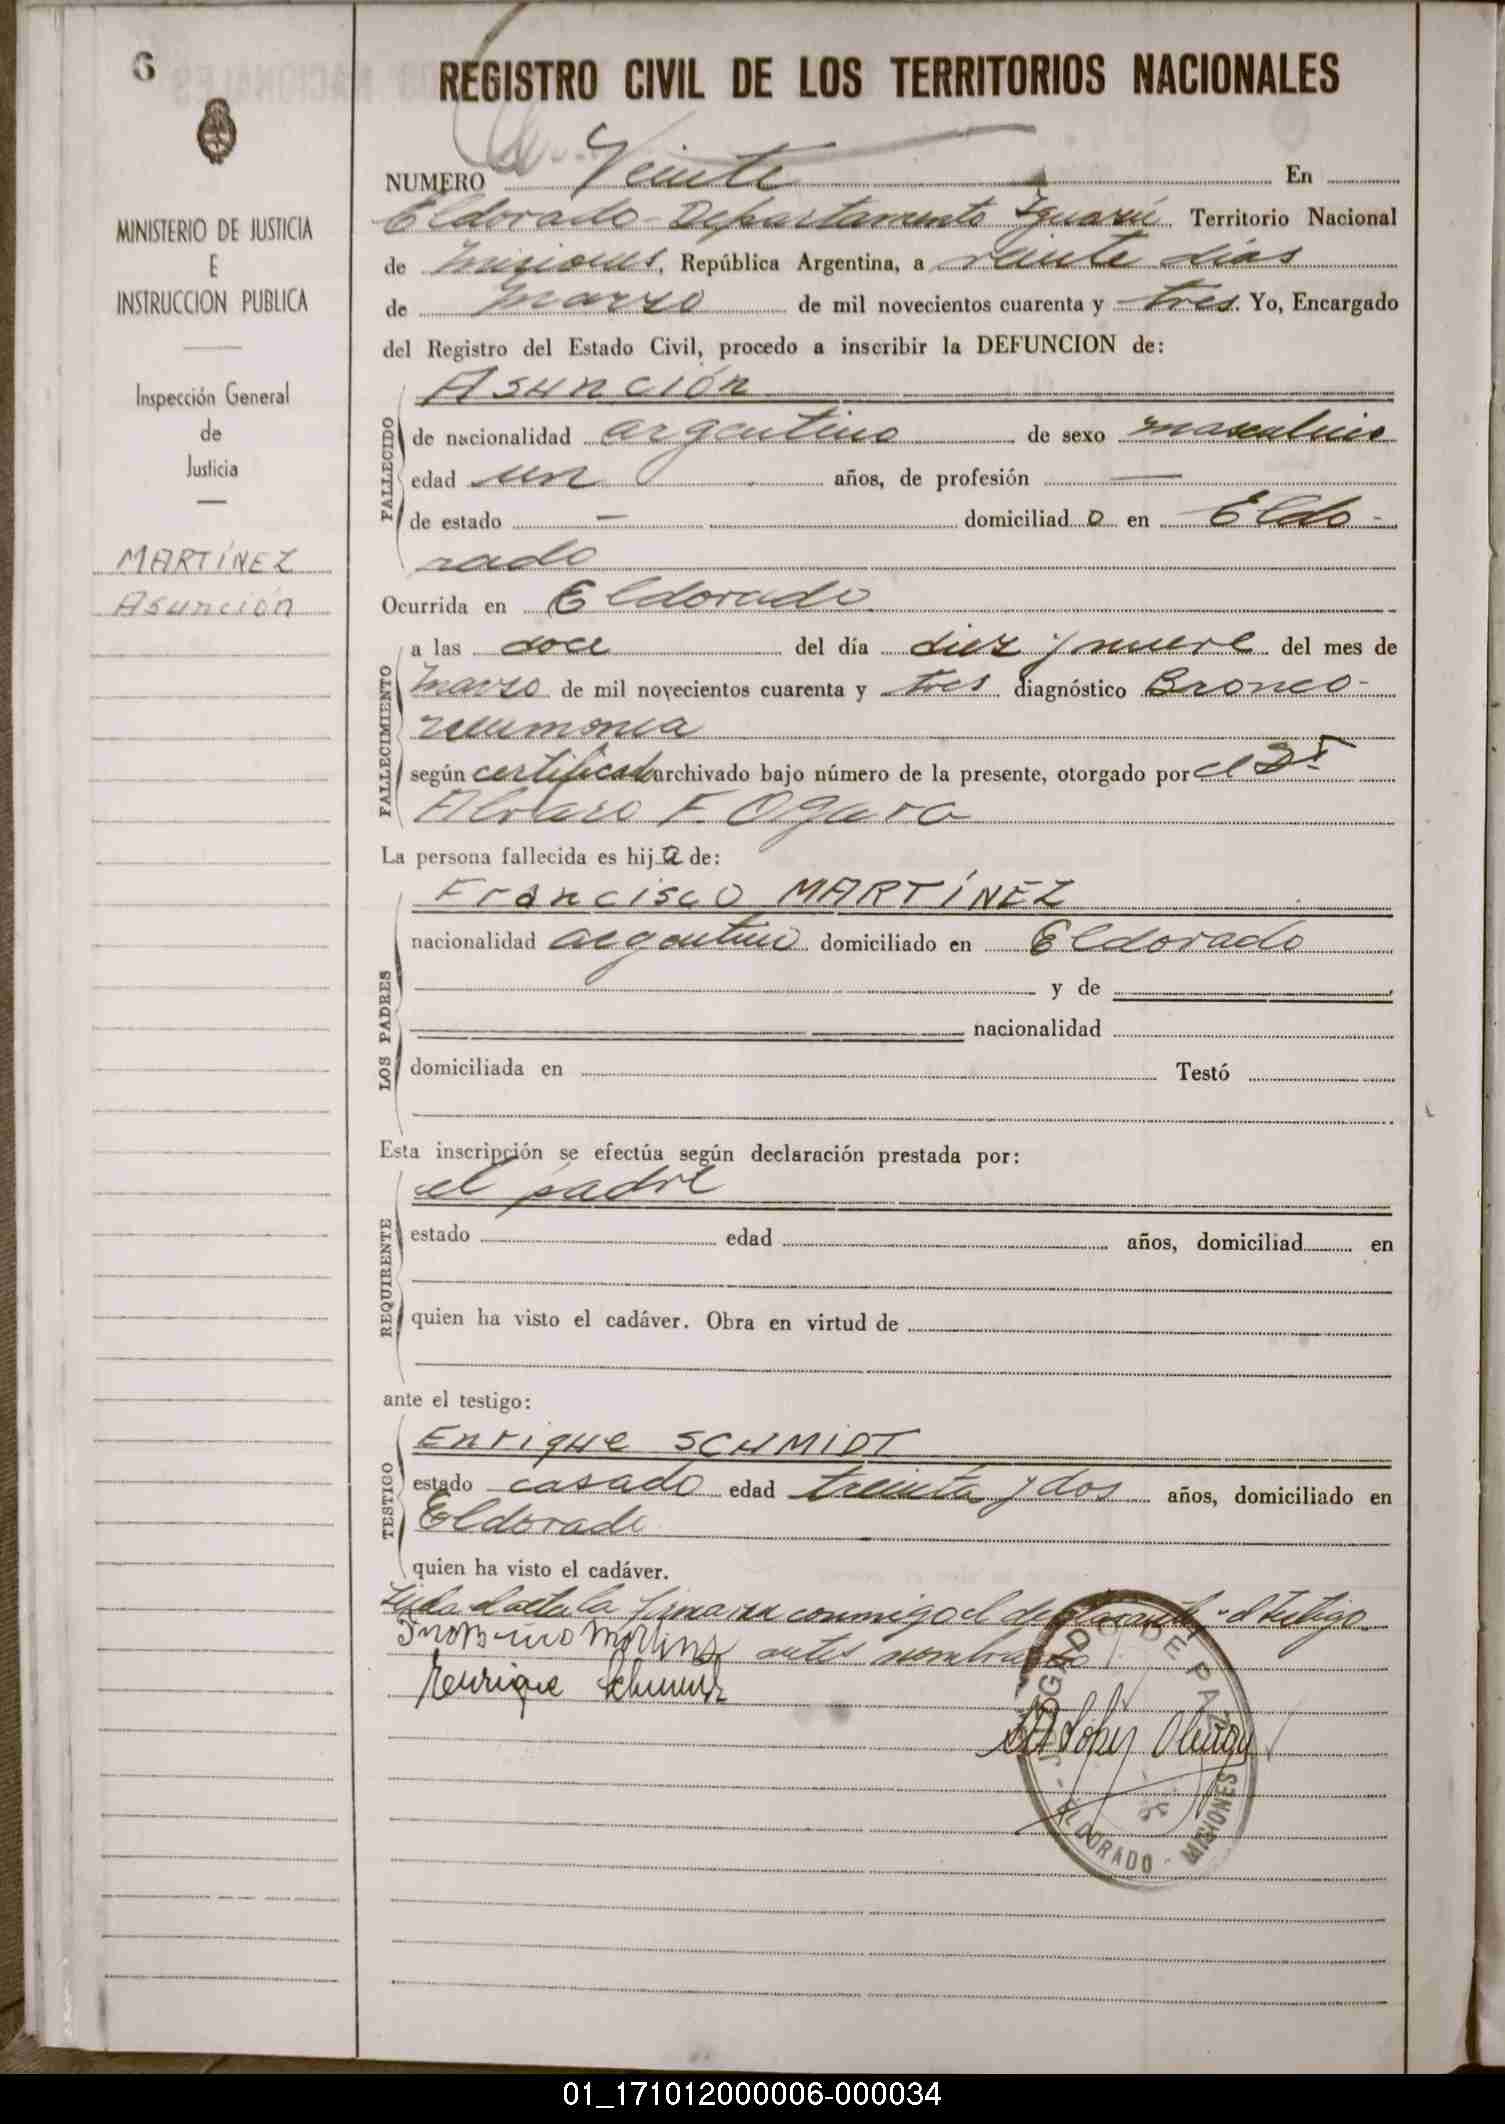 6
REGISTRO CIVIL DE LOS TERRITORIOS NACIONALES
MINISTERIO DE JUSTICIA
E
INSTRUCCION PUBLICA
Inspección General
de
Justicia
MARTÍNEZ
Asunción
NUMERO Veinte En
Eldorado - Departamento Iguazú Territorio Nacional
de Misiones, República Argentina, a veinte días
de Marzo de mil novecientos cuarenta y tres. Yo, Encargado
del Registro del Estado Civil, procedo a inscribir la DEFUNCION de:
FALLECIDO
Asunción
de nacionalidad argentino de sexo masculino
edad un años, de profesión —
de estado — domiciliado en Eldo-
rado
Ocurrida en Eldorado
FALLECIMIENTO
a las doce del día diez y nueve del mes de
Marzo de mil novecientos cuarenta y tres diagnóstico Bronco-
neumonia
según certificado archivado bajo número de la presente, otorgado por el Dr
Alvaro F. Ogara
La persona fallecida es hija de:
LOS PADRES
Francisco MARTÍNEZ
nacionalidad argentino domiciliado en Eldorado
y de
nacionalidad
domiciliada en Testó
Esta inscripción se efectúa según declaración prestada por:
REQUIRENTE
el padre
estado edad años, domiciliad en
quien ha visto el cadáver. Obra en virtud de
ante el testigo:
TESTIGO
Enrique SCHMIDT
estado casado edad treinta y dos años, domiciliado en
Eldorado
quien ha visto el cadáver.
Leida el acta la firmaron conmigo el declarante y el testigo
antes nombrado
Henrique Schmidt
JUZGADO DE PAZ
ELDORADO - MISIONES
01_171012000006-000034